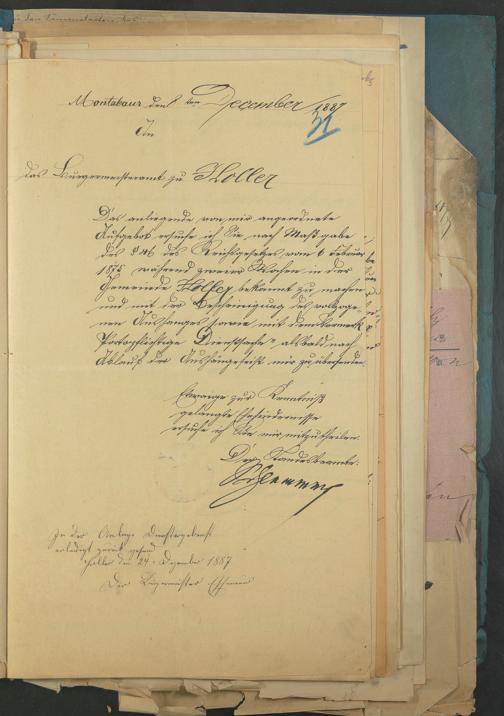 Montabaur den 8 ten December 1887
An
31
das Bürgermeisteramt zu Holler
Das anliegende von mir angeordnete
Aufgebot ersuche ich Sie nach Maßgabe
des § 46 des Reichsgesetzes vom 6 Februar
1875 während zweier Wochen in der
Gemeinde Holler bekannt zu machen
und mit der Bescheinigung des vollzoge-
nen Aushanges sowie mit dem Vermerk
"Portopflichtige Dienstsache" alsbald nach
Ablauf der Aushängefrist mir zu übersenden
Etwaige zur Kenntniß
gelangte Ehehindernisse
ersuche ich Sie mir mitzutheilen.
Der Standesbeamte:
In der Anlage Dienstergebenst
erledigt zurück gesand
Holler den 24. Dezember 1887
Der Bürgermeister